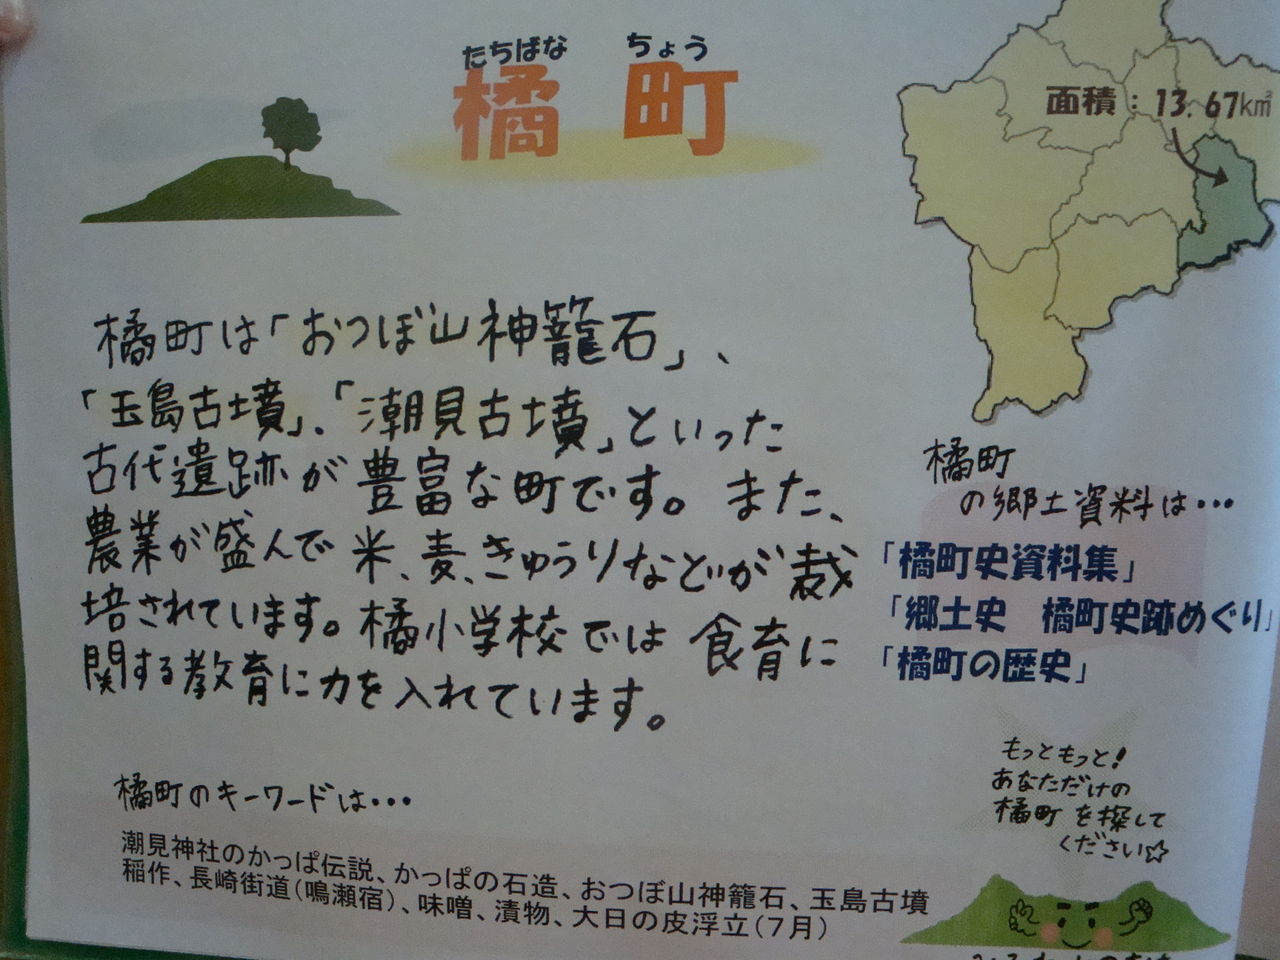 たちばな ちょう
橘 町
面積：13.67km²
橘町は「おつぼ山神籠石」、
「玉島古墳」、「潮見古墳」といった
古代遺跡が豊富な町です。また、
農業が盛んで米、麦、きゅうりなどが栽
培されています。橘小学校では食育に
関する教育に力を入れています。
橘町
の郷土資料は・・・
「橘町史資料集」
「郷土史　橘町史跡めぐり」
「橘町の歴史」
もっともっと！
あなただけの
橘町を探して
ください☆
橘町のキーワードは・・・
潮見神社のかっぱ伝説、かっぱの石造、おつぼ山神籠石、玉島古墳
稲作、長崎街道（鳴瀬宿）、味噌、漬物、大日の皮浮立（7月）